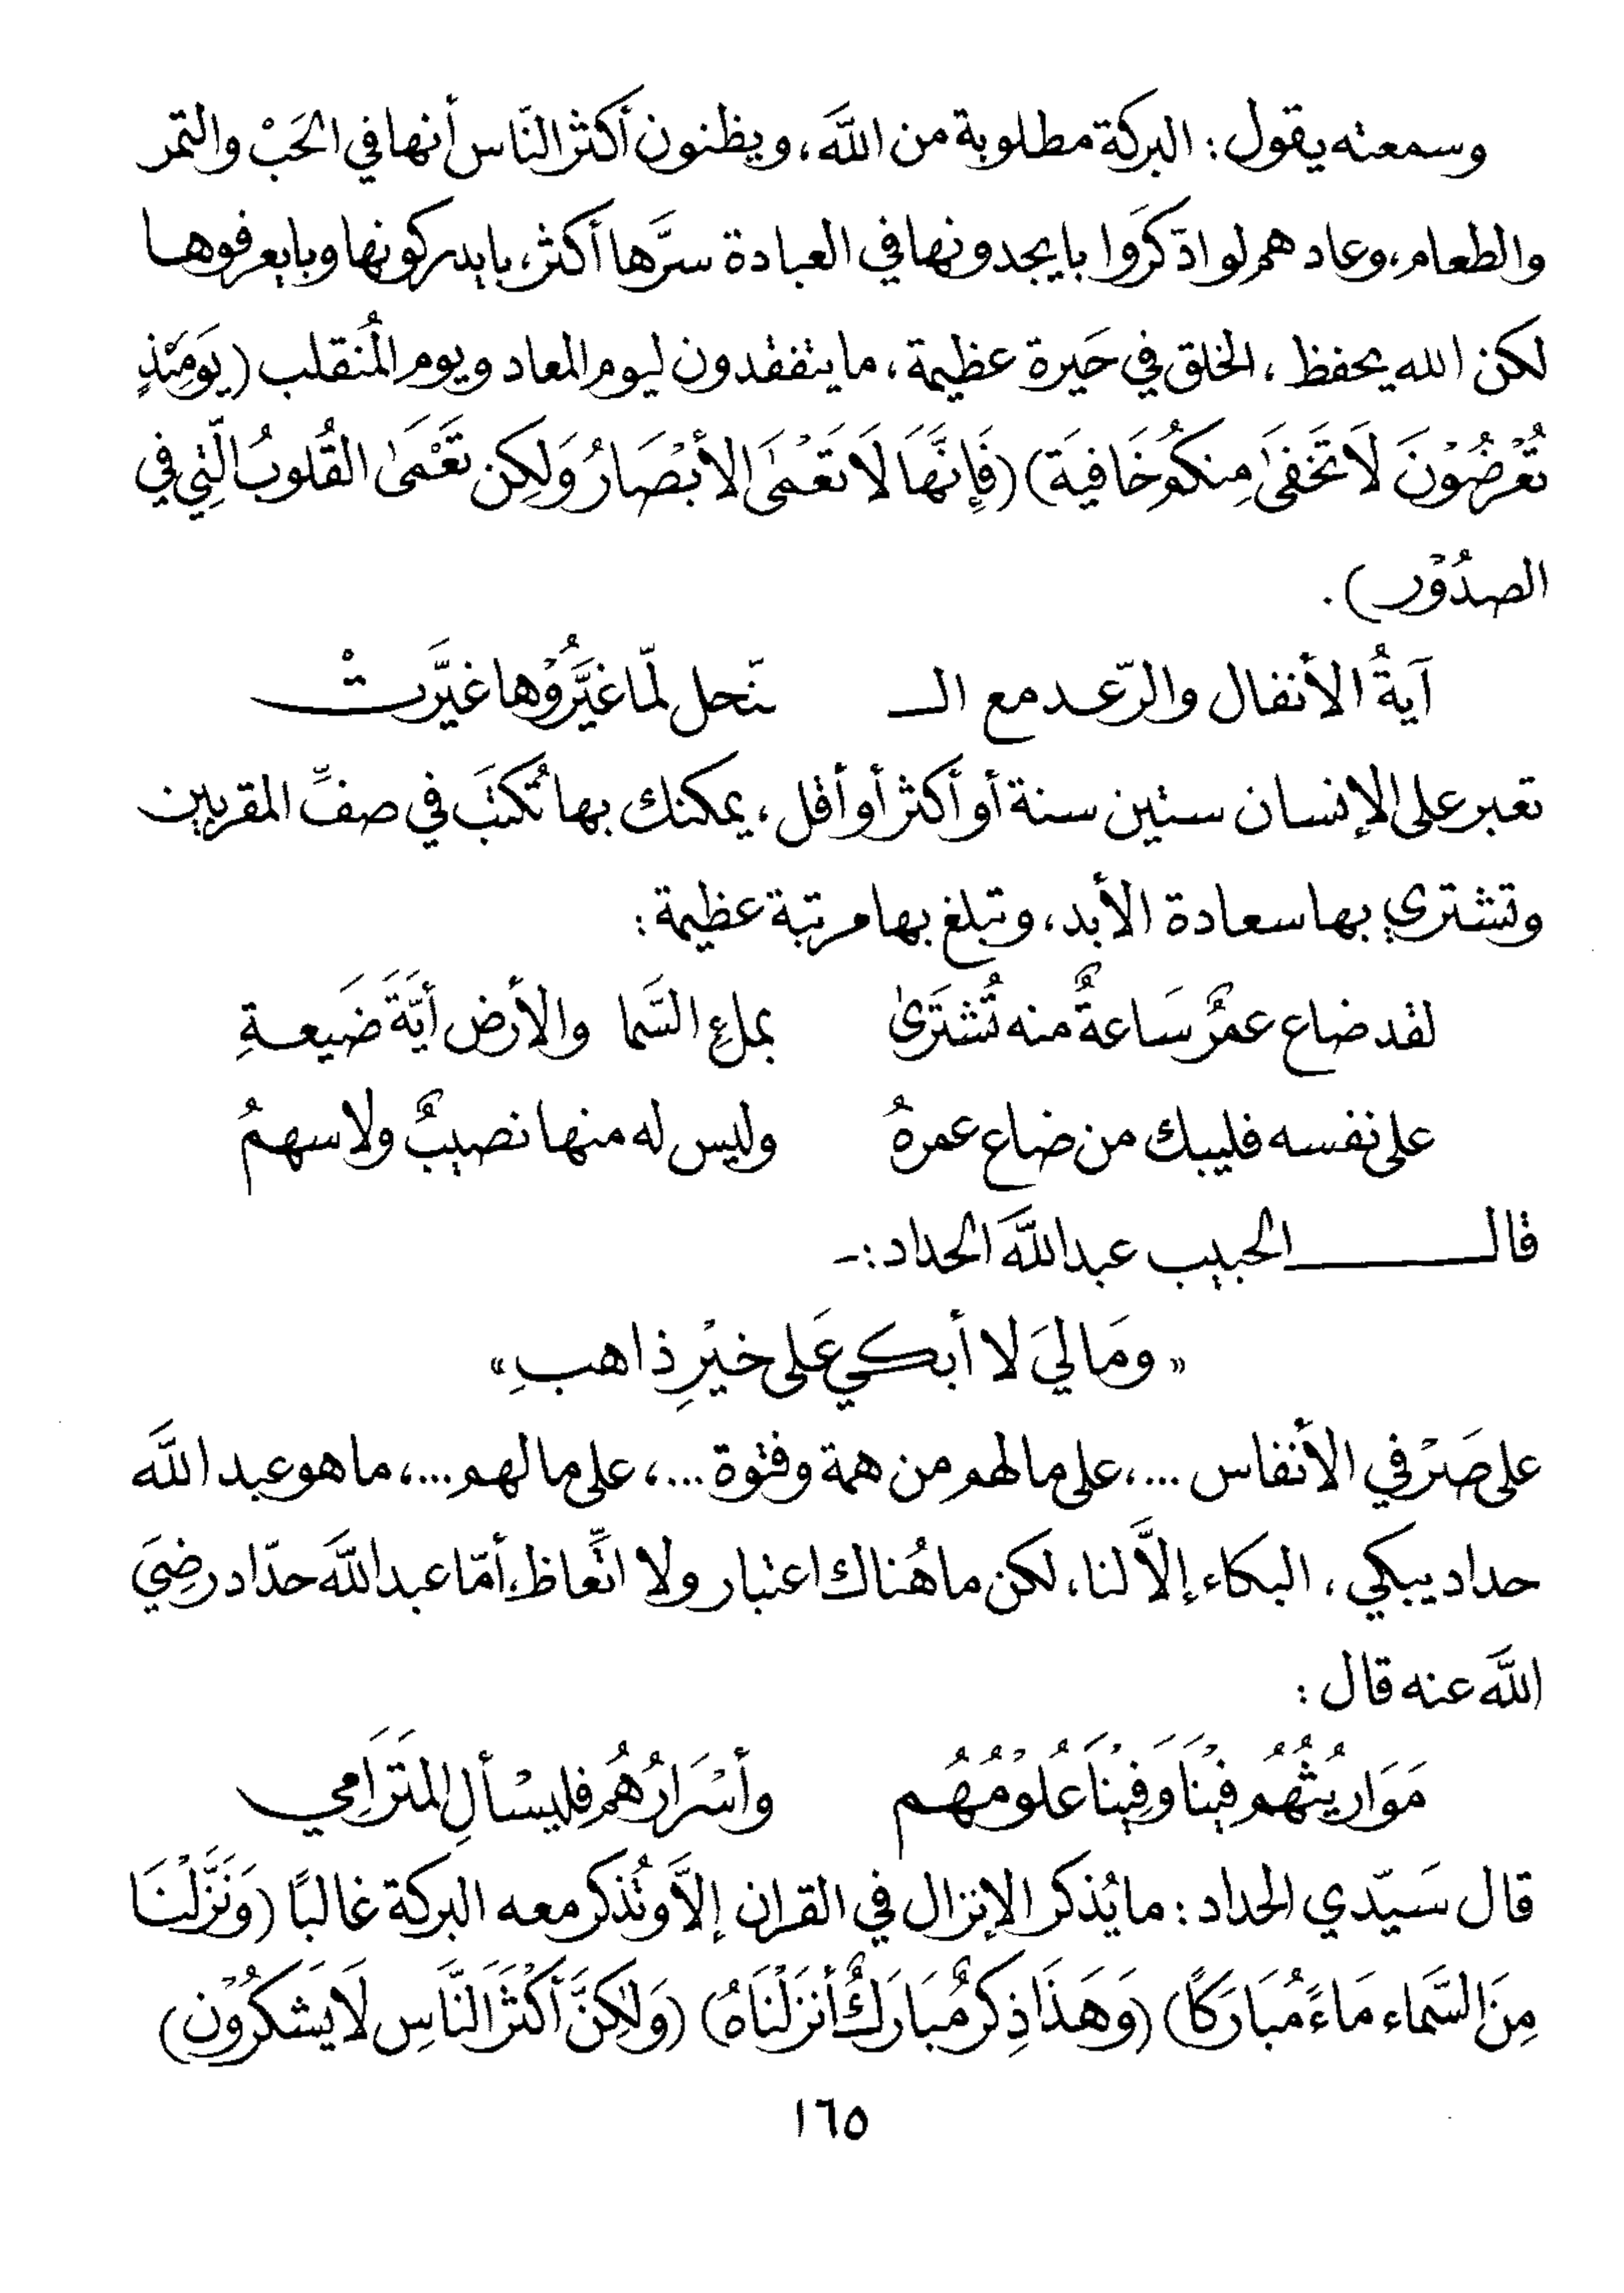 وسمعته يقول : البركة مطلوبة من اللَّه ، ويظنون أكثر النّاس أنها في الحَبْ والتمر
والطعام ، وعاد هم لو ادّكرَوا بايجدونها في العبادة سرَّها أكثر ، بايدركونها وبايعرفوها
لكن الله يحفظ ، الخلق في حَيرة عظيمة ، ما يتفقدون ليوم المعاد ويوم المُنقلب (يَومَئذٍ
تُعْرضُوْنَ لَا تَخَفىَٰ مِنكمُ خَافيةَ) (فَإِنَّهَا لَا تَعْمَىٰ الأبْصَارُ وَلَكِن تَعْمَىٰ القُلوبُ الّتِي في
الصدُوْر) .
آيةُ الأنفال والرّعد مع الـ ـنّحل لمّا غيَّرُوْها غيَّرتْ
تعبر على الإنسان ستين سنة أو أكثر أو أقل ، يمكنك بها تُكتبَ في صفِّ المقربين
وتشتري بها سعادة الأبد ، وتبلغ بها مرتبة عظيمة :
لقد ضاع عمرٌ سَاعةٌ منه تُشتَرىٰ بملءِ السَّما والأرض أيَّةَ ضَيعةِ
على نفسه فليبك من ضاع عمرهُ وليس له منها نصيبٌ ولا سهمُ
قالـــــ الحبيب عبداللَّه الحداد :-
« ومَا ليَ لا أبكي عَلى خيْرِ ذاهبِ »
على صَرْفي الأنفاس ... ، على ما لهم من همة وفتوة ... ، على ما لهم ... ، ما هو عبد اللَّه
حداد يبكي ، البكاء إلاَّ لنا ، لكن ما هُناك اعتبار ولا اتِّعاظ ، أمّا عبد اللَّه حدّاد رضِيَ
اللَّه عنه قال :
مَوَاريثُهُم فيْنَا وَفيْنَا عُلوْمُهُم وأسْرَارُهُم فليسْألِ المتَرَامِي
قال سَيّدي الحداد : ما يُذكر الإنزال في القران إلاَّ وتُذكر معه البركة غالبًا (وَنَزَّلْنَا
مِنَ السَّمَاء مَاءً مُبَارَكًا) (وَهَذَا ذِكرٌ مُبَارَكٌ أنزَلْنَاهُ) (وَلَٰكِنَّ أكْثَرَ النَّاسِ لَا يَشكرُوْن)
١٦٥